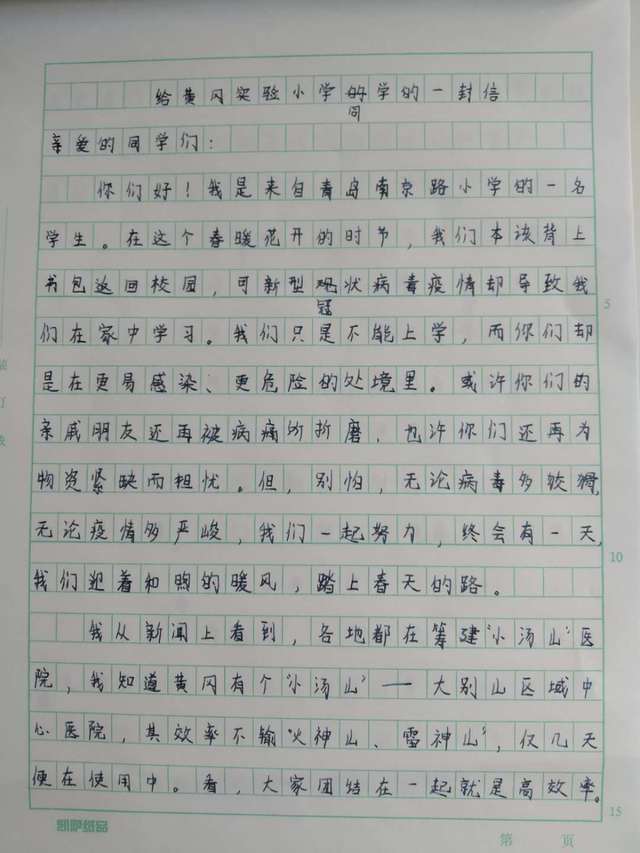 给黄冈实验小学的学的一封信
同
亲爱的同学们：
你们好！我是来自青岛南京路小学的一名
学生。在这个春暖花开的时节，我们本该背上
书包返回校园，可新型观状病毒疫情却导致我
冠
5
们在家中学习。我们只是不能上学，而你们却
是在更易感染、更危险的处境里。或许你们的
亲戚朋友还再被病痛所折磨，也许你们还再为
物资紧缺而担忧。但，别怕，无论病毒多狡猾，
无论疫情多严峻，我们一起努力，终会有一天，
10
我们迎着和煦的暖风，踏上春天的路。
我从新闻上看到，各地都在筹建“小汤山”医
院，我知道黄冈有个“小汤山”——大别山区域中
心医院，其效率不输“火神山、雷神山”，仅几天
便在使用中。看，大家团结在一起就是高效率。
15
凯萨纸品
第 页